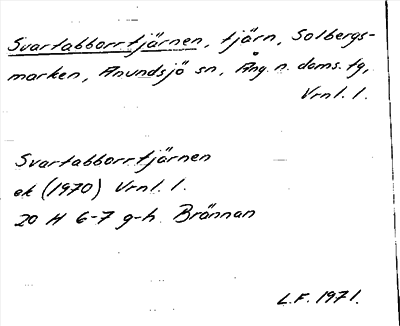 Svartabborrtjärnen, tjärn, Solbergs-
marken, Anundsjö sn, Ång. n. doms. tg,
Vrnl. l.
Svartabborrtjärnen
ek (1970) Vrnl. l.
20 H 6-7 g-h. Brännan
L.F. 1971.